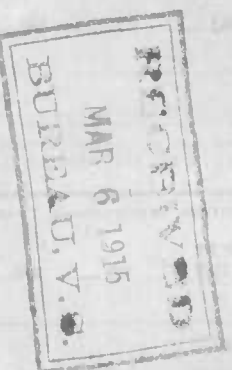 RECEIVED
MAR 6 1915
BUREAU. V. S.